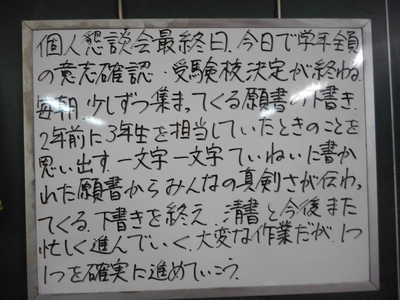 個人懇談会最終日。今日で学年全員
の意志確認・受験校決定が終わる。
毎朝、少しずつ集まってくる願書の下書き。
2年前に3年生を担当していたときのことを
思い出す。一文字一文字ていねいに書か
れた願書からみんなの真剣さが伝わっ
てくる。下書きを終え、清書と今後また
忙しく進んでいく。大変な作業だが、1つ
1つを確実に進めていこう。